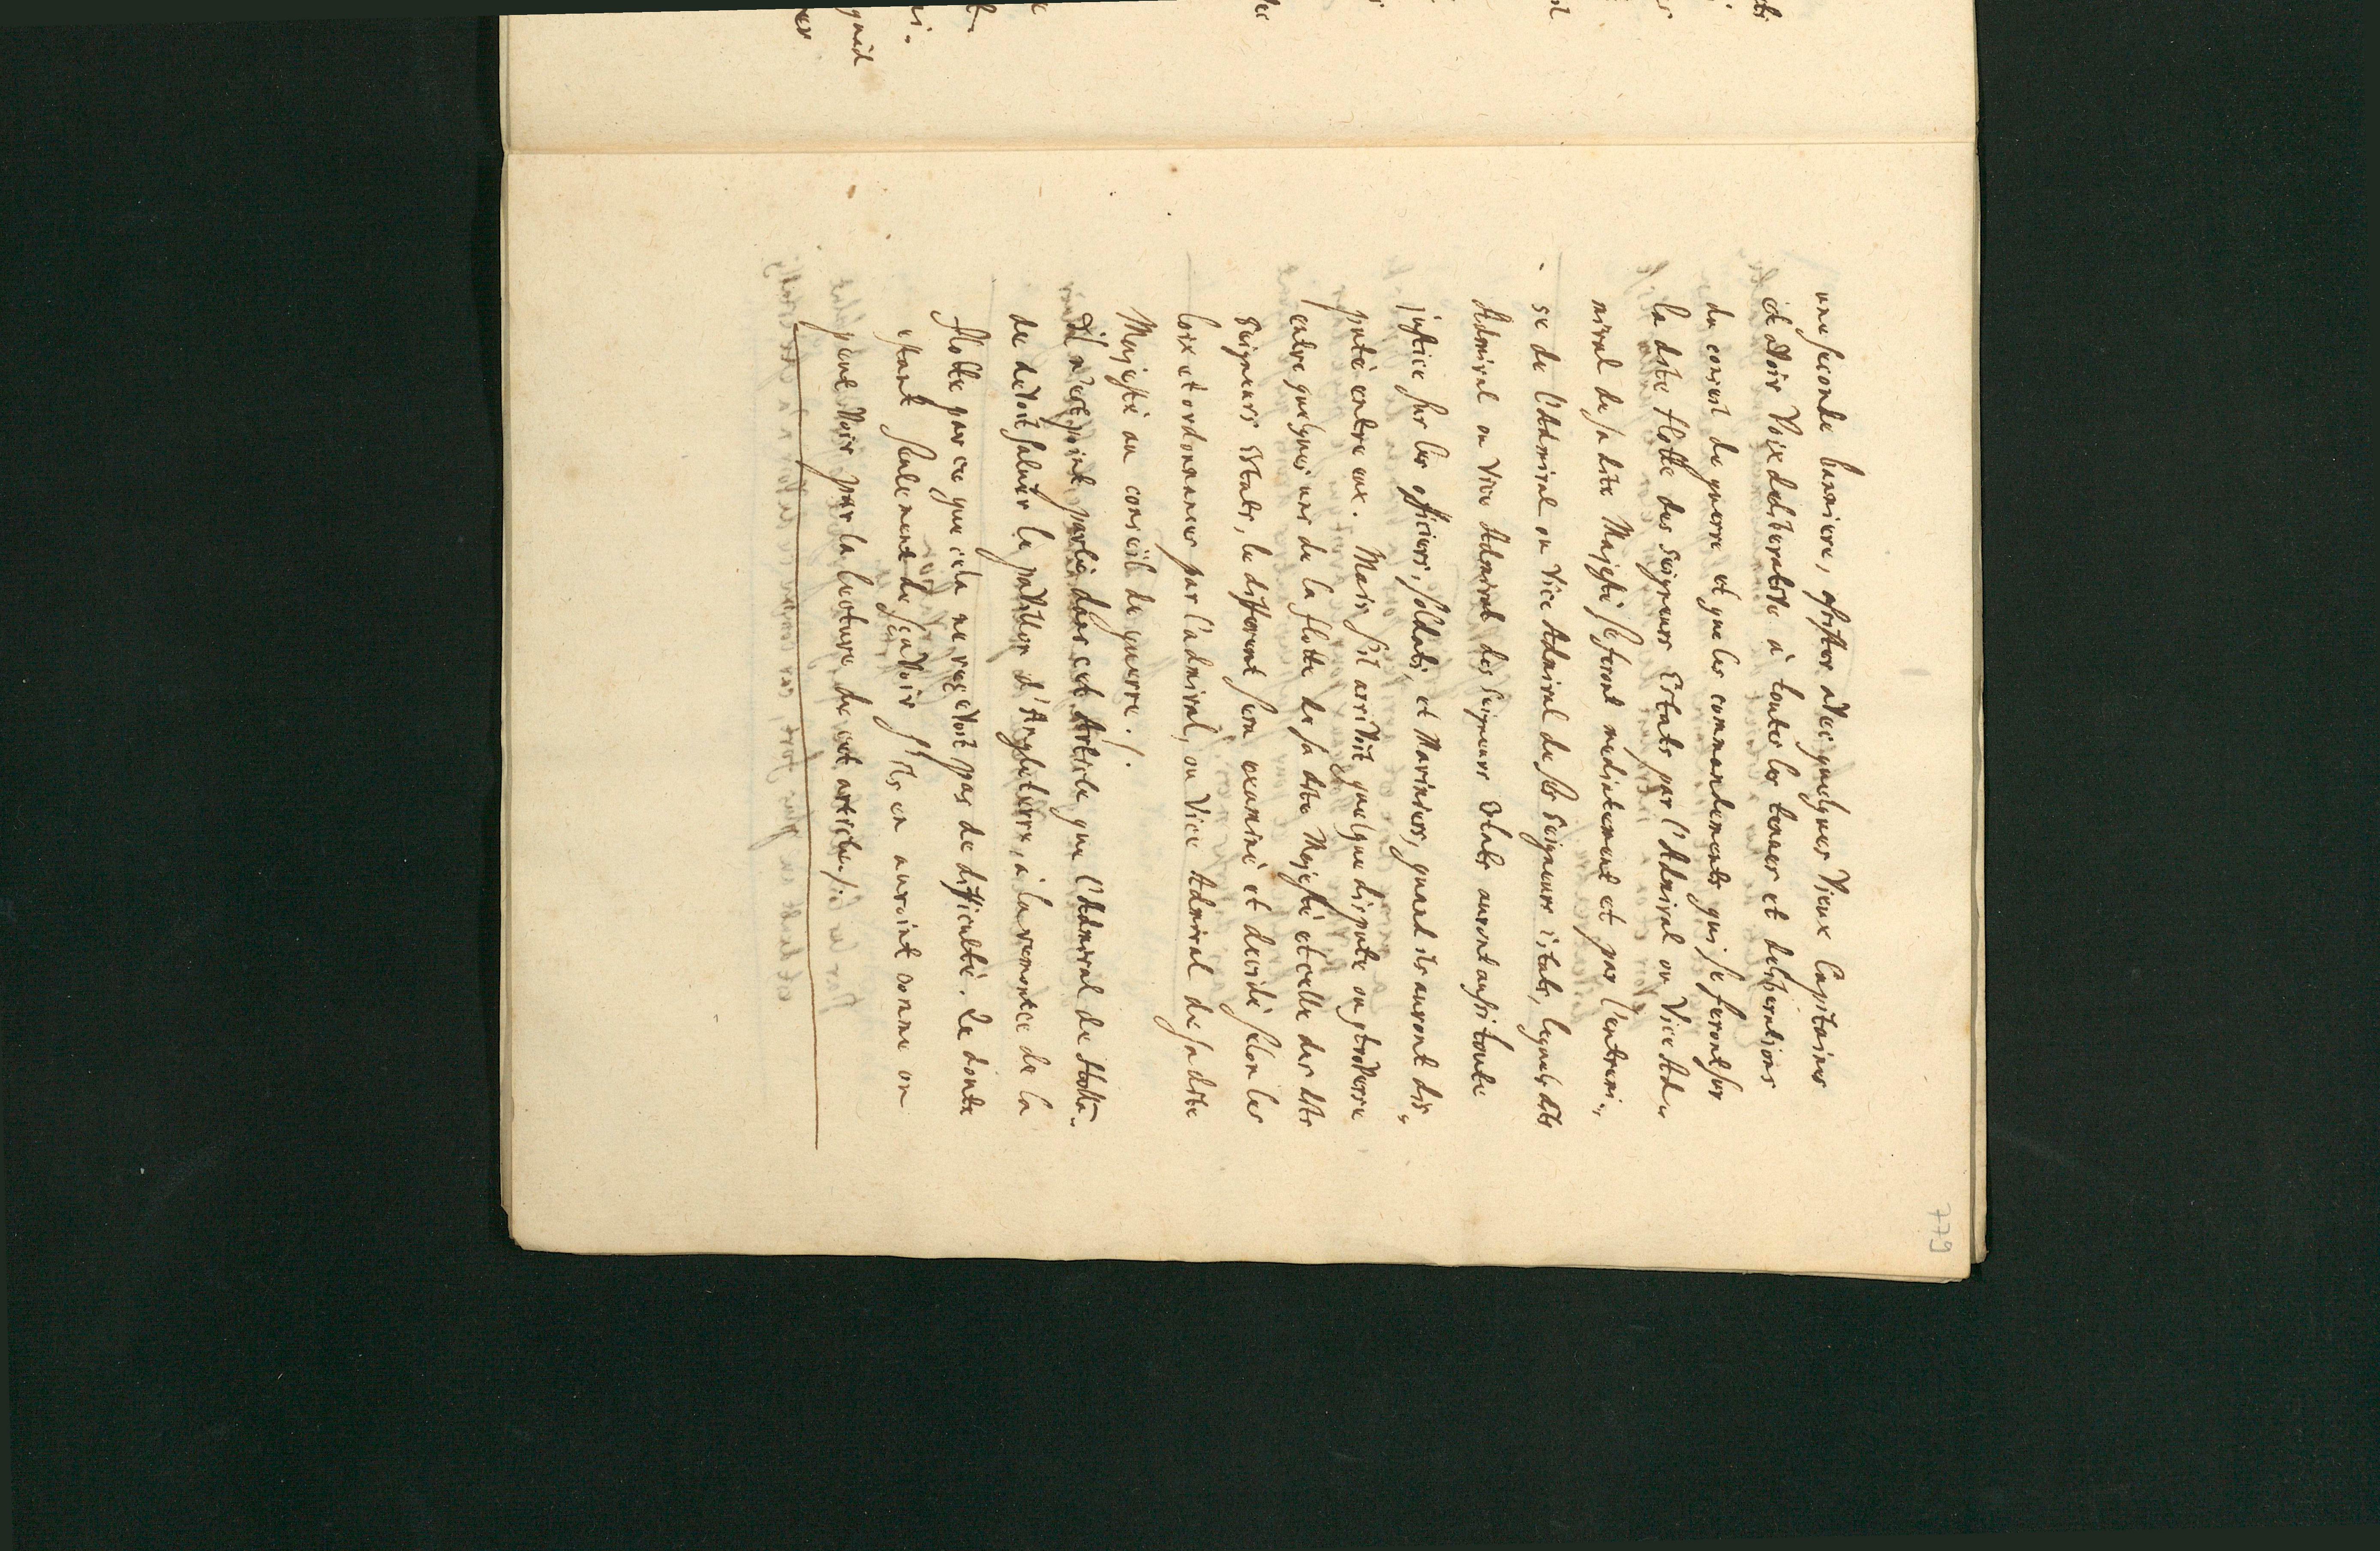 une seconde banniere, assister avec quelques Vieux Capitaines
et avoir Voix deliberative à toutes les tenues et deliberations
du conseil de guerre et que les commandements qui se feront sur
la dite flotte des Seigneurs Estats par l'Admiral ou Vice Ad„
miral de sa dite Majesté se feront mediatement et par l'entremi„
se de l'Admiral ou Vice Admiral de ses Seigneurs Estats, lequels dits
Admiral ou Vice Admiral des Seigneurs Estats auront aussi toute
justice sur les officiers, soldats, et Mariniers, quand ils auront dis„
puté entre eux. Mais s'il arrivoit quelque dispute ou
entre quelques uns de la flotte de sa dite Majesté et celle des dits
Seigneurs Estats, le different sera examiné et decidé selon les
loix et ordonnances par l'admiral, ou Vice Admiral de sa dite
Majesté au conseil de guerre ./.
Il n'est point parlé dans cet Article que l'Admiral de
de devoit saluer le pavillon d'Angleterre, à la
flotte par ce que cela ne recevoit pas de difficulté. Le doute
estant seulement de sçavoir s'ils en auroint comme on
peut Voir par la lecture de cet article ./.
577